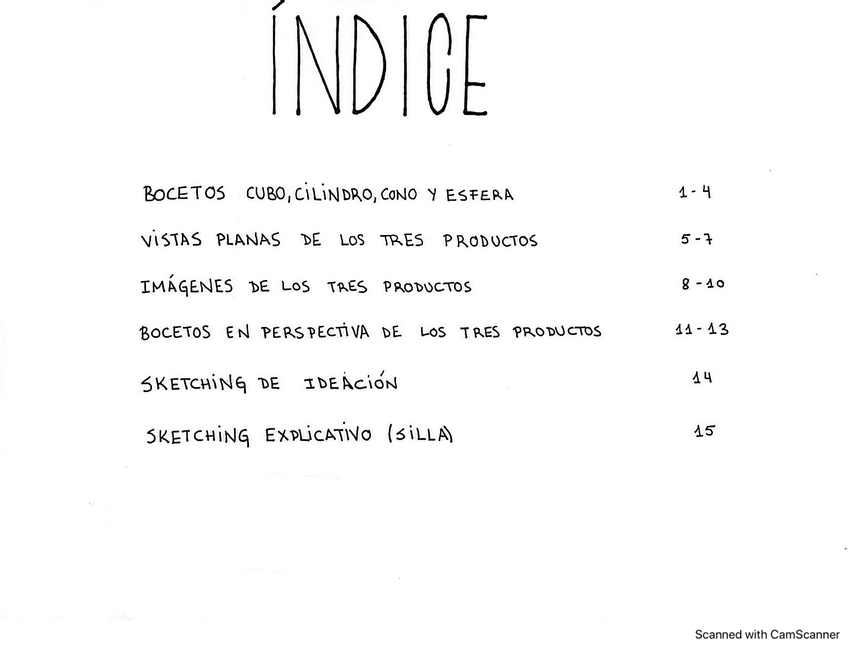 ÍNDICE
BOCETOS CUBO, CILINDRO, CONO Y ESFERA 1-4
VISTAS PLANAS DE LOS TRES PRODUCTOS 5-7
IMÁGENES DE LOS TRES PRODUCTOS 8-10
BOCETOS EN PERSPECTIVA DE LOS TRES PRODUCTOS 11-13
SKETCHING DE IDEACIÓN 14
SKETCHING EXPLICATIVO (SILLA) 15
Scanned with CamScanner